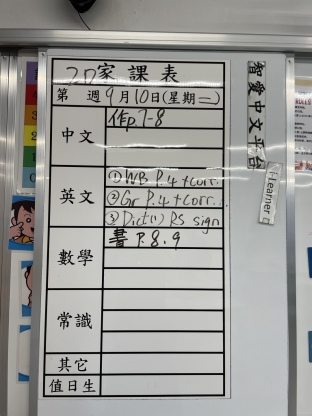 2D家課表
第 週9月10日(星期二)
中文
作p.7-8
英文
①WB P.4+corr.
②Gr P.4+corr.
③Dict(1) RS sign
數學
書 P.8.9
常識
其它
值日生
智愛中文平台
i-Learner